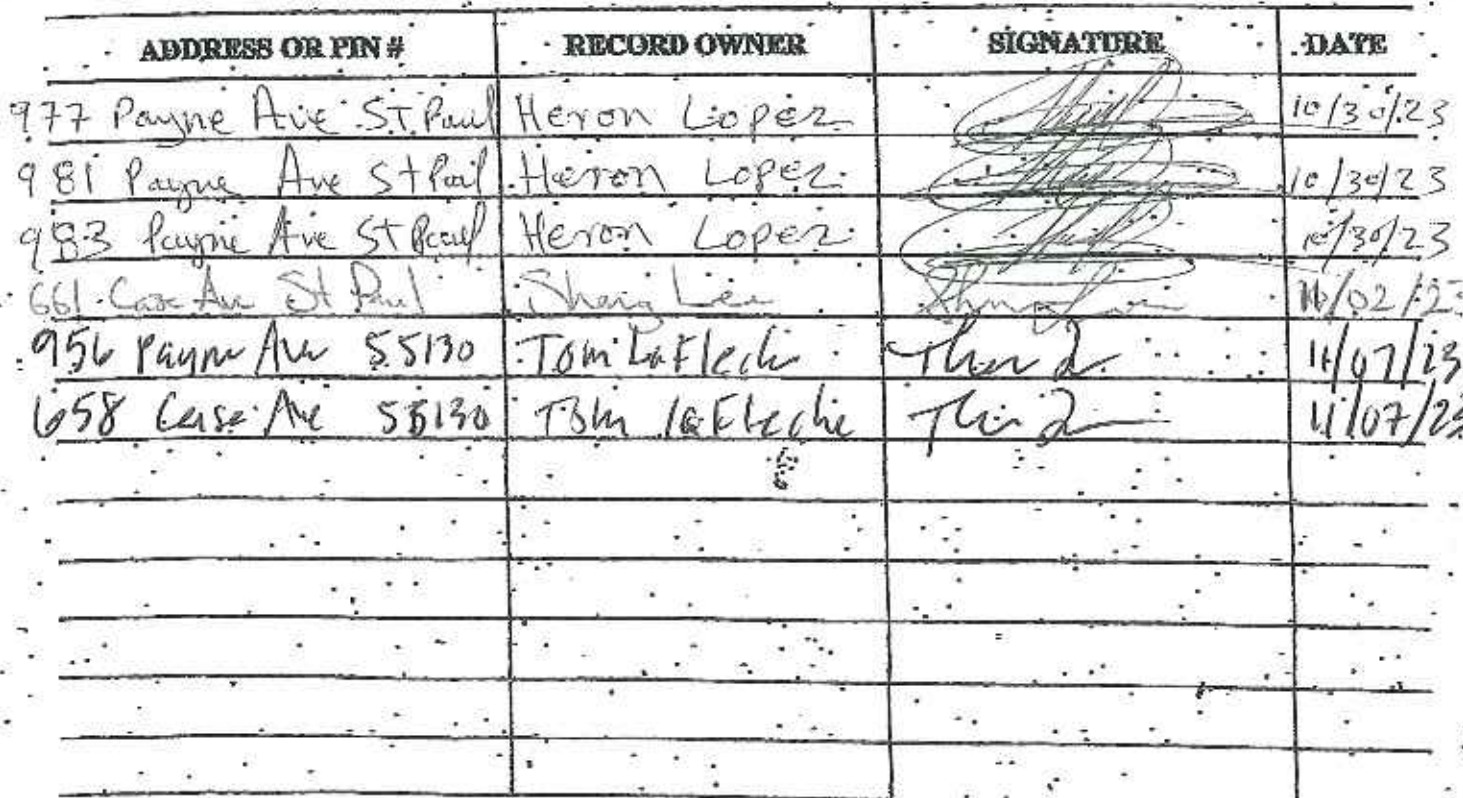 ADDRESS OR PIN # RECORD OWNER SIGNATURE DATE
977 Payne Ave St. Paul Heron Lopez 10/30/23
981 Payne Ave St Paul Heron Lopez 10/30/23
983 Payne Ave St Paul Heron Lopez 10/30/23
661 Case Ave St Paul 11/02/23
956 Payne Ave 55130 Tom LaFleche 11/07/23
658 Case Ave 55130 Tom LaFleche 11/07/23